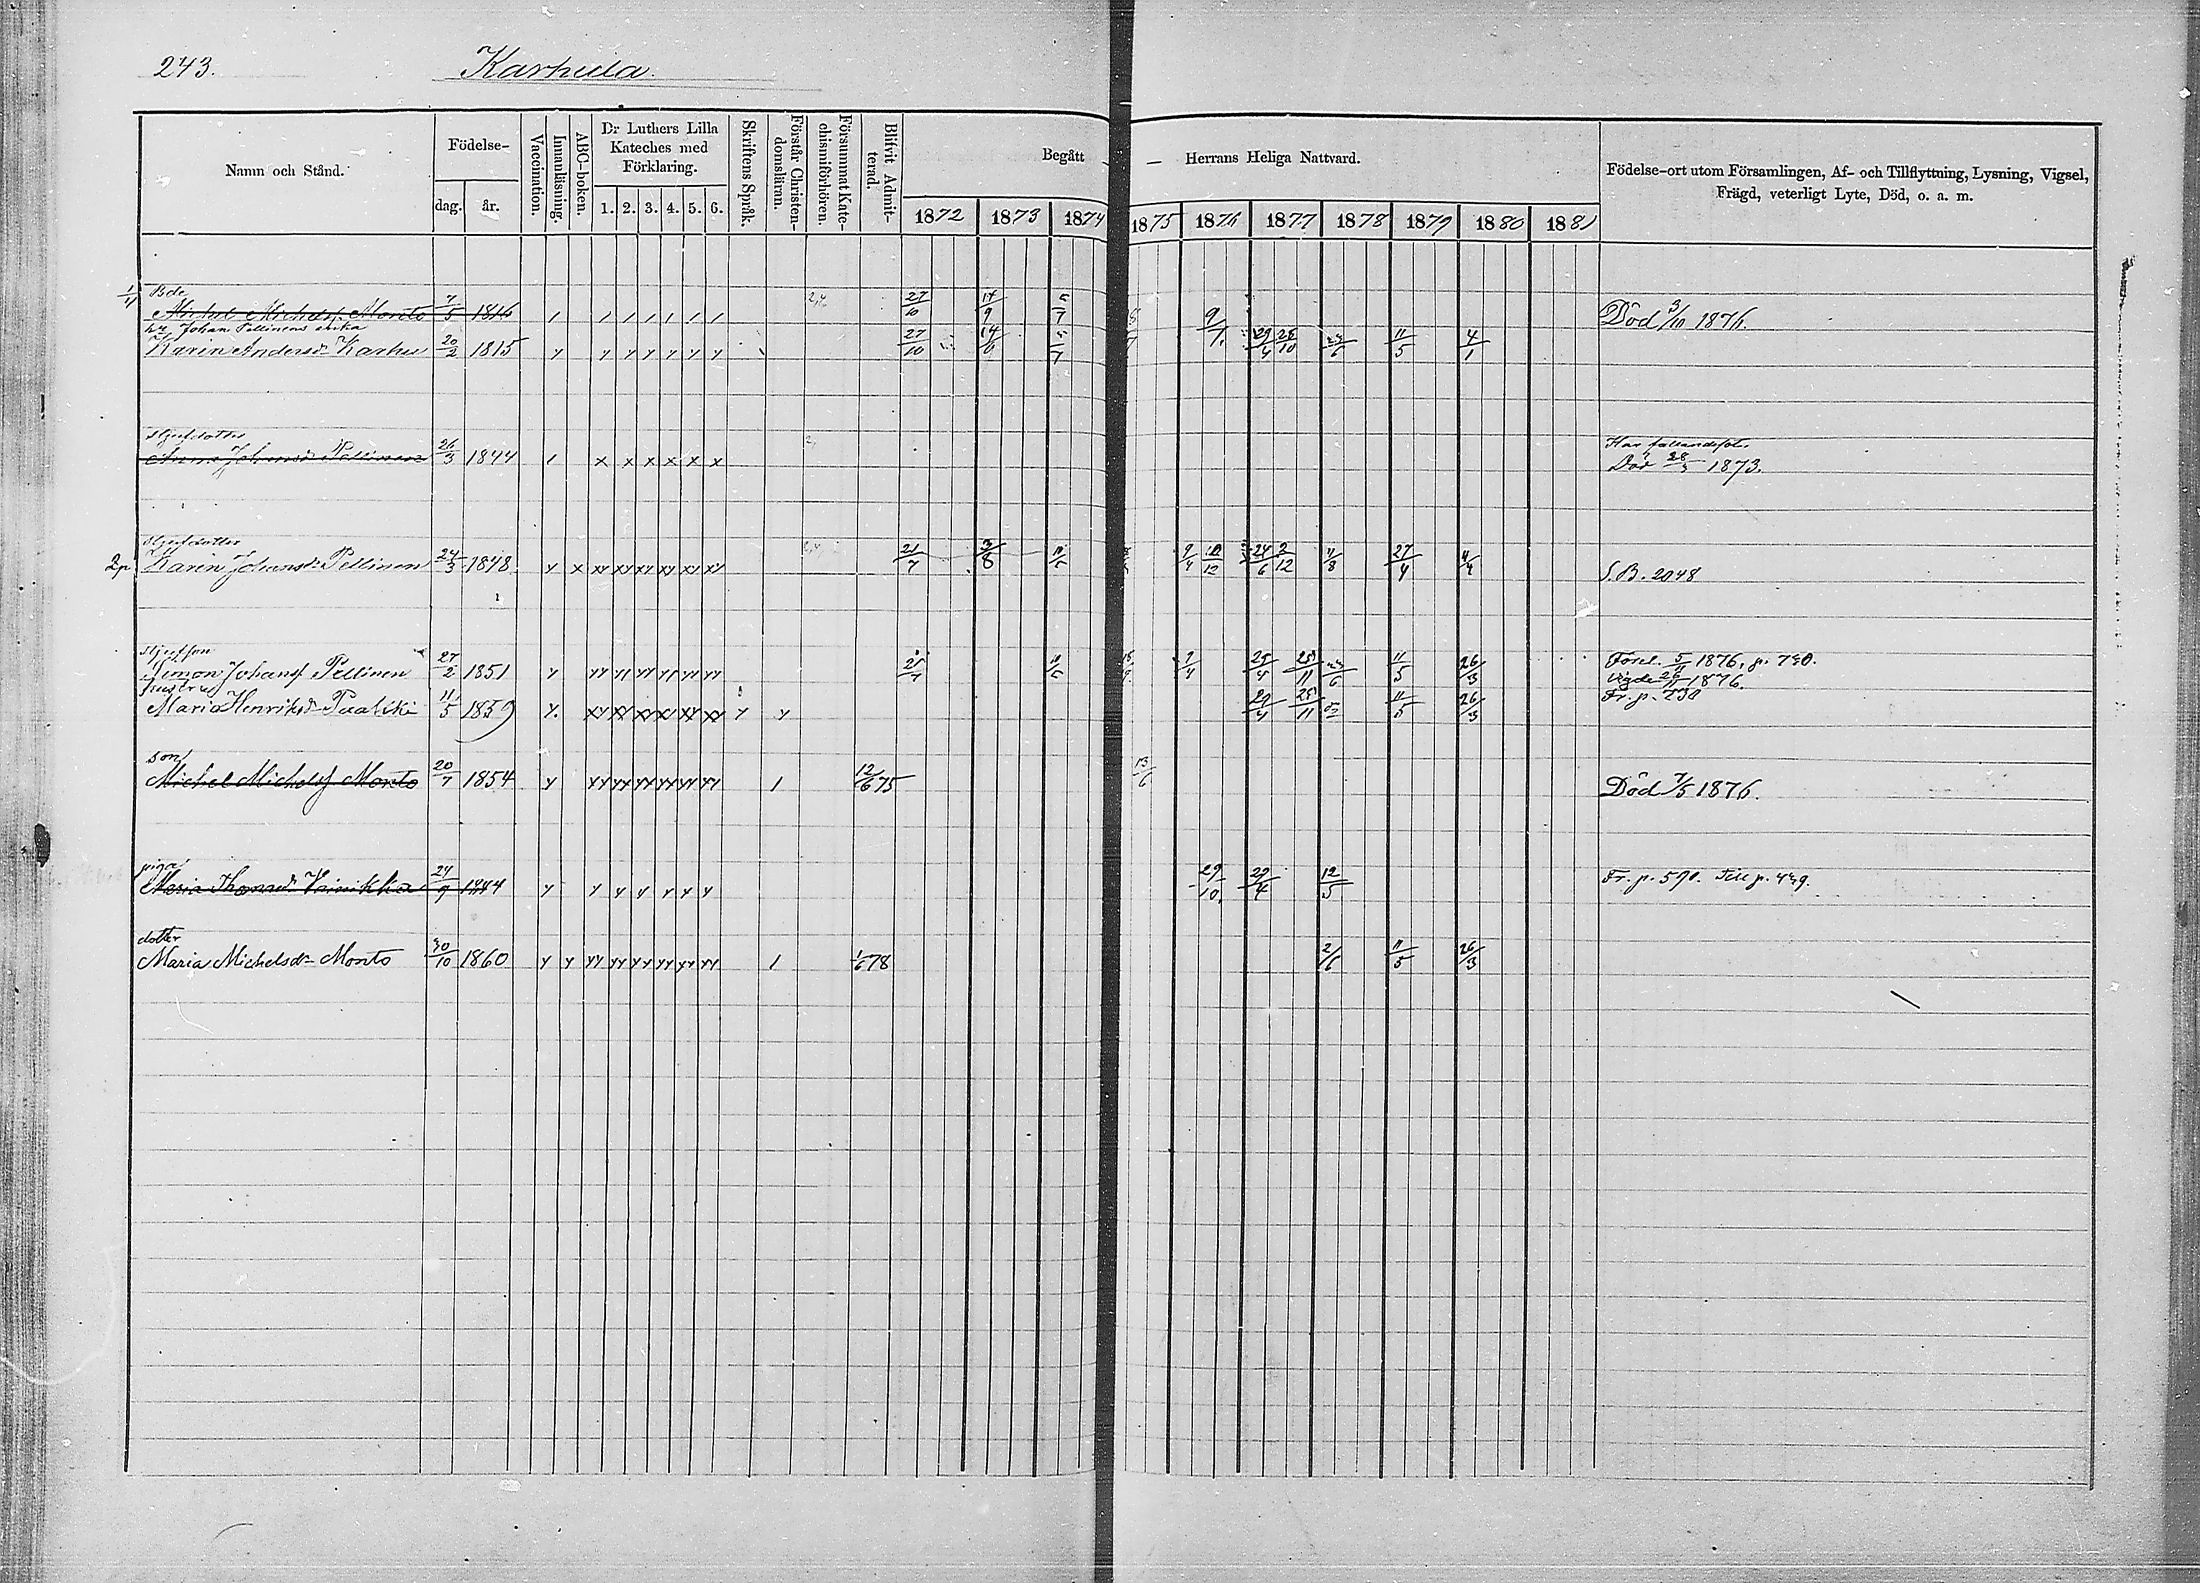 243. Karhula.
Namn och Stånd.
Födelse-
dag. år.
Vaccination.
Innanläsning.
ABC-boken.
Dr Luthers Lilla
Kateches med
Förklaring.
1. 2. 3. 4. 5. 6.
Skriftens Språk.
Förstår Christendomsläran.
Försummat Katechismiförhören.
Blifvit Admitterad.
Begått — Herrans Heliga Nattvard.
1872 1873 1874 1875 1876 1877 1878 1879 1880 1881
Födelse-ort utom Församlingen, Af- och Tillflyttning, Lysning, Vigsel,
Frägd, veterligt Lyte, Död, o. a. m.
Bde
Michel Michelsf. Monto 7/5 1816 27/10 9/7 Död 3/10 1876.
Johan Pellinens enka
Karin Andersdr Karhu 20/2 1815 27/10 29/4 28/10 11/5 4/1
styfdotter
Anna Johansdr Pellinen 26/3 1844 Har fallandesot.
Död 28/3 1873.
styfdotter
Karin Johansdr Pellinen 24/3 1848 21/7 3/8 24/6 2/12 11/8 27/4 S.B. 2048
styfson
Simon Johansf Pellinen 27/2 1851 11/5 26/3 5/11 1876, p. 730.
Vigde 26/11 1876.
hustru
Maria Henriksdr 11/5 1859 29/4 25/11 11/5 26/3 Fr. p. 730
son
Michel Michelsf Monto 20/7 1854 12/6 75 13/6 Död 7/5 1876.
piga
Maria Thomasdr Vainikka 24/9 1844 29/10 29/4 12/5 Fr. p. 590. Till p. 449.
dotter
Maria Michelsdr Monto 30/10 1860 1/6 78 2/6 11/5 26/3